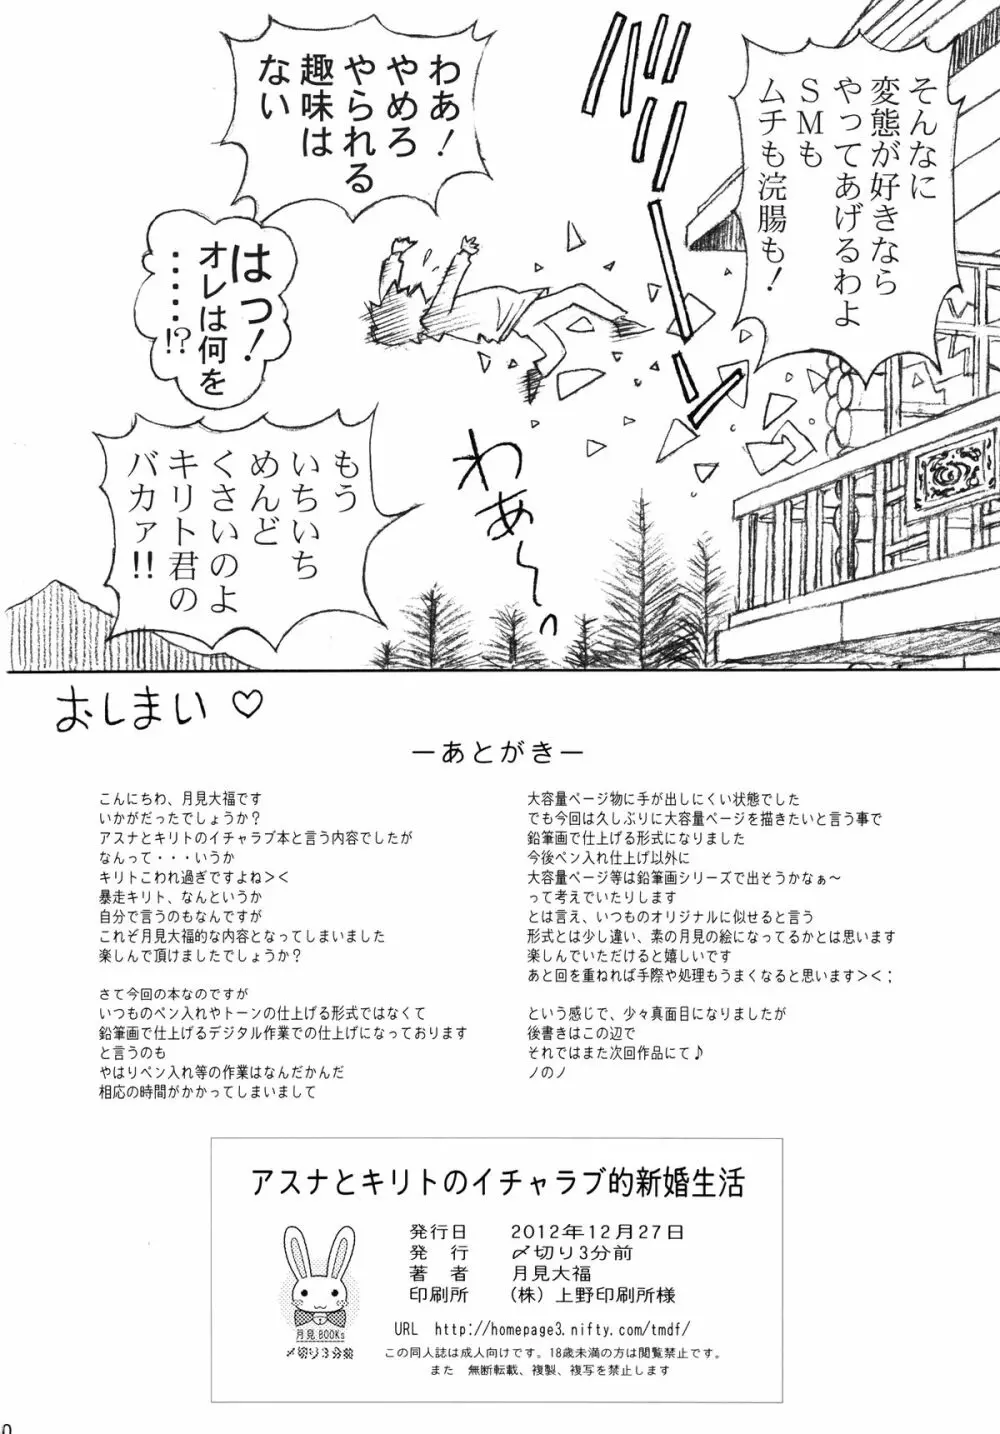 そんなに
変態が好きなら
やってあげるわよ
SMも
ムチも浣腸も！
わあ！
やめろ
やられる
趣味は
ない
はっ！
オレは何を
・・・・・・!?
わあ〜っ
もう
いちいち
めんど
くさいのよ
キリト君の
バカァ!!
おしまい♡
ーあとがきー
こんにちわ、月見大福です
いかがだったでしょうか？
アスナとキリトのイチャラブ本と言う内容でしたが
なんって・・・いうか
キリトこわれ過ぎですよね＞＜
暴走キリト、なんというか
自分で言うのもなんですが
これぞ月見大福的な内容となってしまいました
楽しんで頂けましたでしょうか？
さて今回の本なのですが
いつものペン入れやトーンの仕上げる形式ではなくて
鉛筆画で仕上げるデジタル作業での仕上げになっております
と言うのも
やはりペン入れ等の作業はなんだかんだ
相応の時間がかかってしまいまして
大容量ページ物に手が出しにくい状態でした
でも今回は久しぶりに大容量ページを描きたいと言う事で
鉛筆画で仕上げる形式になりました
今後ペン入れ仕上げ以外に
大容量ページ等は鉛筆画シリーズで出そうかなぁ〜
って考えでいたりします
とは言え、いつものオリジナルに似せると言う
形式とは少し違い、素の月見の絵になってるかとは思います
楽しんでいただけると嬉しいです
あと回を重ねれば手際や処理もうまくなると思います＞＜；
という感じで、少々真面目になりましたが
後書きはこの辺で
それではまた次回作品にて♪
ノのノ
アスナとキリトのイチャラブ的新婚生活
発行日 2012年12月27日
発 行 〆切り3分前
著 者 月見大福
印刷所 （株）上野印刷所様
月見BOOKs
〆切り3分前
URL http://homepage3.nifty.com/tmdf/
この同人誌は成人向けです。18歳未満の方は閲覧禁止です。
また 無断転載、複製、複写を禁止します